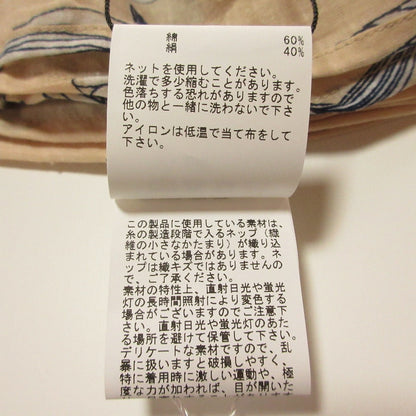 綿 60%
絹 40%
ネットを使用してください。
洗濯で多少縮むことがあります。
色落ちする恐れがありますので
他の物と一緒に洗わないで下さ
い。
アイロンは低温で当て布をして
下さい。
この製品に使用している素材は、
糸の製造段階で入るネップ(繊
維の小さなかたまり)が織り込
まれている場合があります。ネ
ップは織キズではありませんの
で、ご了承ください。
素材の特性上、直射日光や蛍光
灯の長時間照射により変色する
場合がございますのでご注意下
さい。直射日光や蛍光灯のあた
る場所を避けて保管して下さい。
デリケートな素材ですので、乱
暴に扱いますと破損しやすく、
特に着用時に激しい運動や、極
度な力が加われば、目が開いた